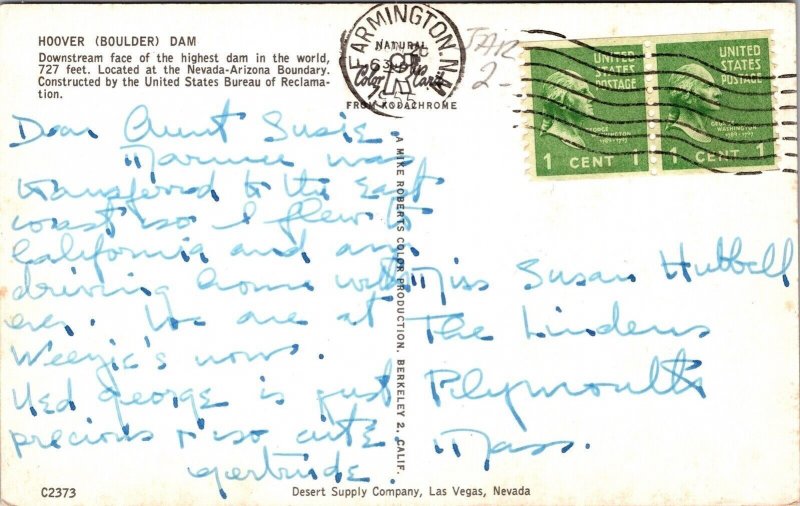 HOOVER (BOULDER) DAM
Downstream face of the highest dam in the world,
727 feet. Located at the Nevada-Arizona Boundary.
Constructed by the United States Bureau of Reclama-
tion.
NATURAL
Color Card
FROM KODACHROME
FARMINGTON. N.M.
UNITED
STATES
POSTAGE
GEORGE
WASHINGTON
1789-1797
1 CENT 1
UNITED
STATES
POSTAGE
GEORGE
WASHINGTON
1789-1797
1 CENT 1
Dear Aunt Susie,
was
transferred to the East
coast so I flew to
California and am
driving home with
We are at
Weezie's now.
Ued george is just
precious & so cute.
gertrude.
A MIKE ROBERTS COLOR PRODUCTION. BERKELEY 2, CALIF.
Miss Susan Hubbell
The Lindens
Plymouth
Mass.
C2373
Desert Supply Company, Las Vegas, Nevada